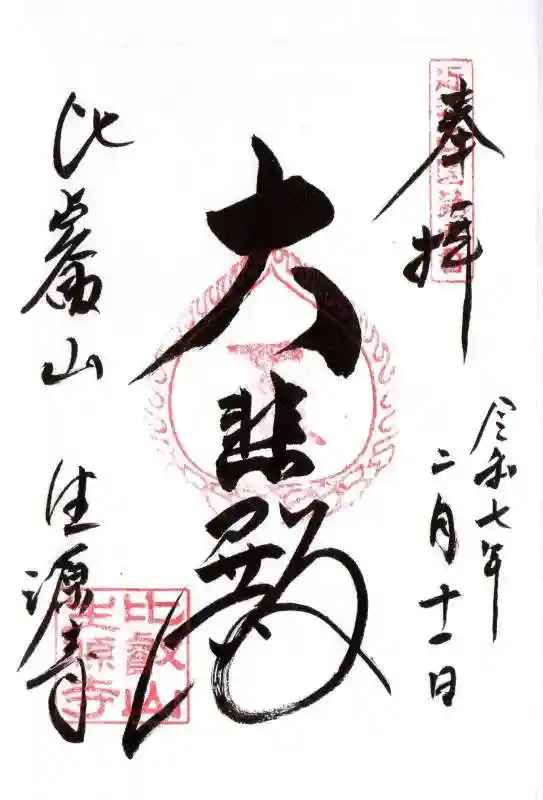 奉拝
令和七年
二月十一日
大悲殿
比叡山 生源寺
比叡山
生源寺